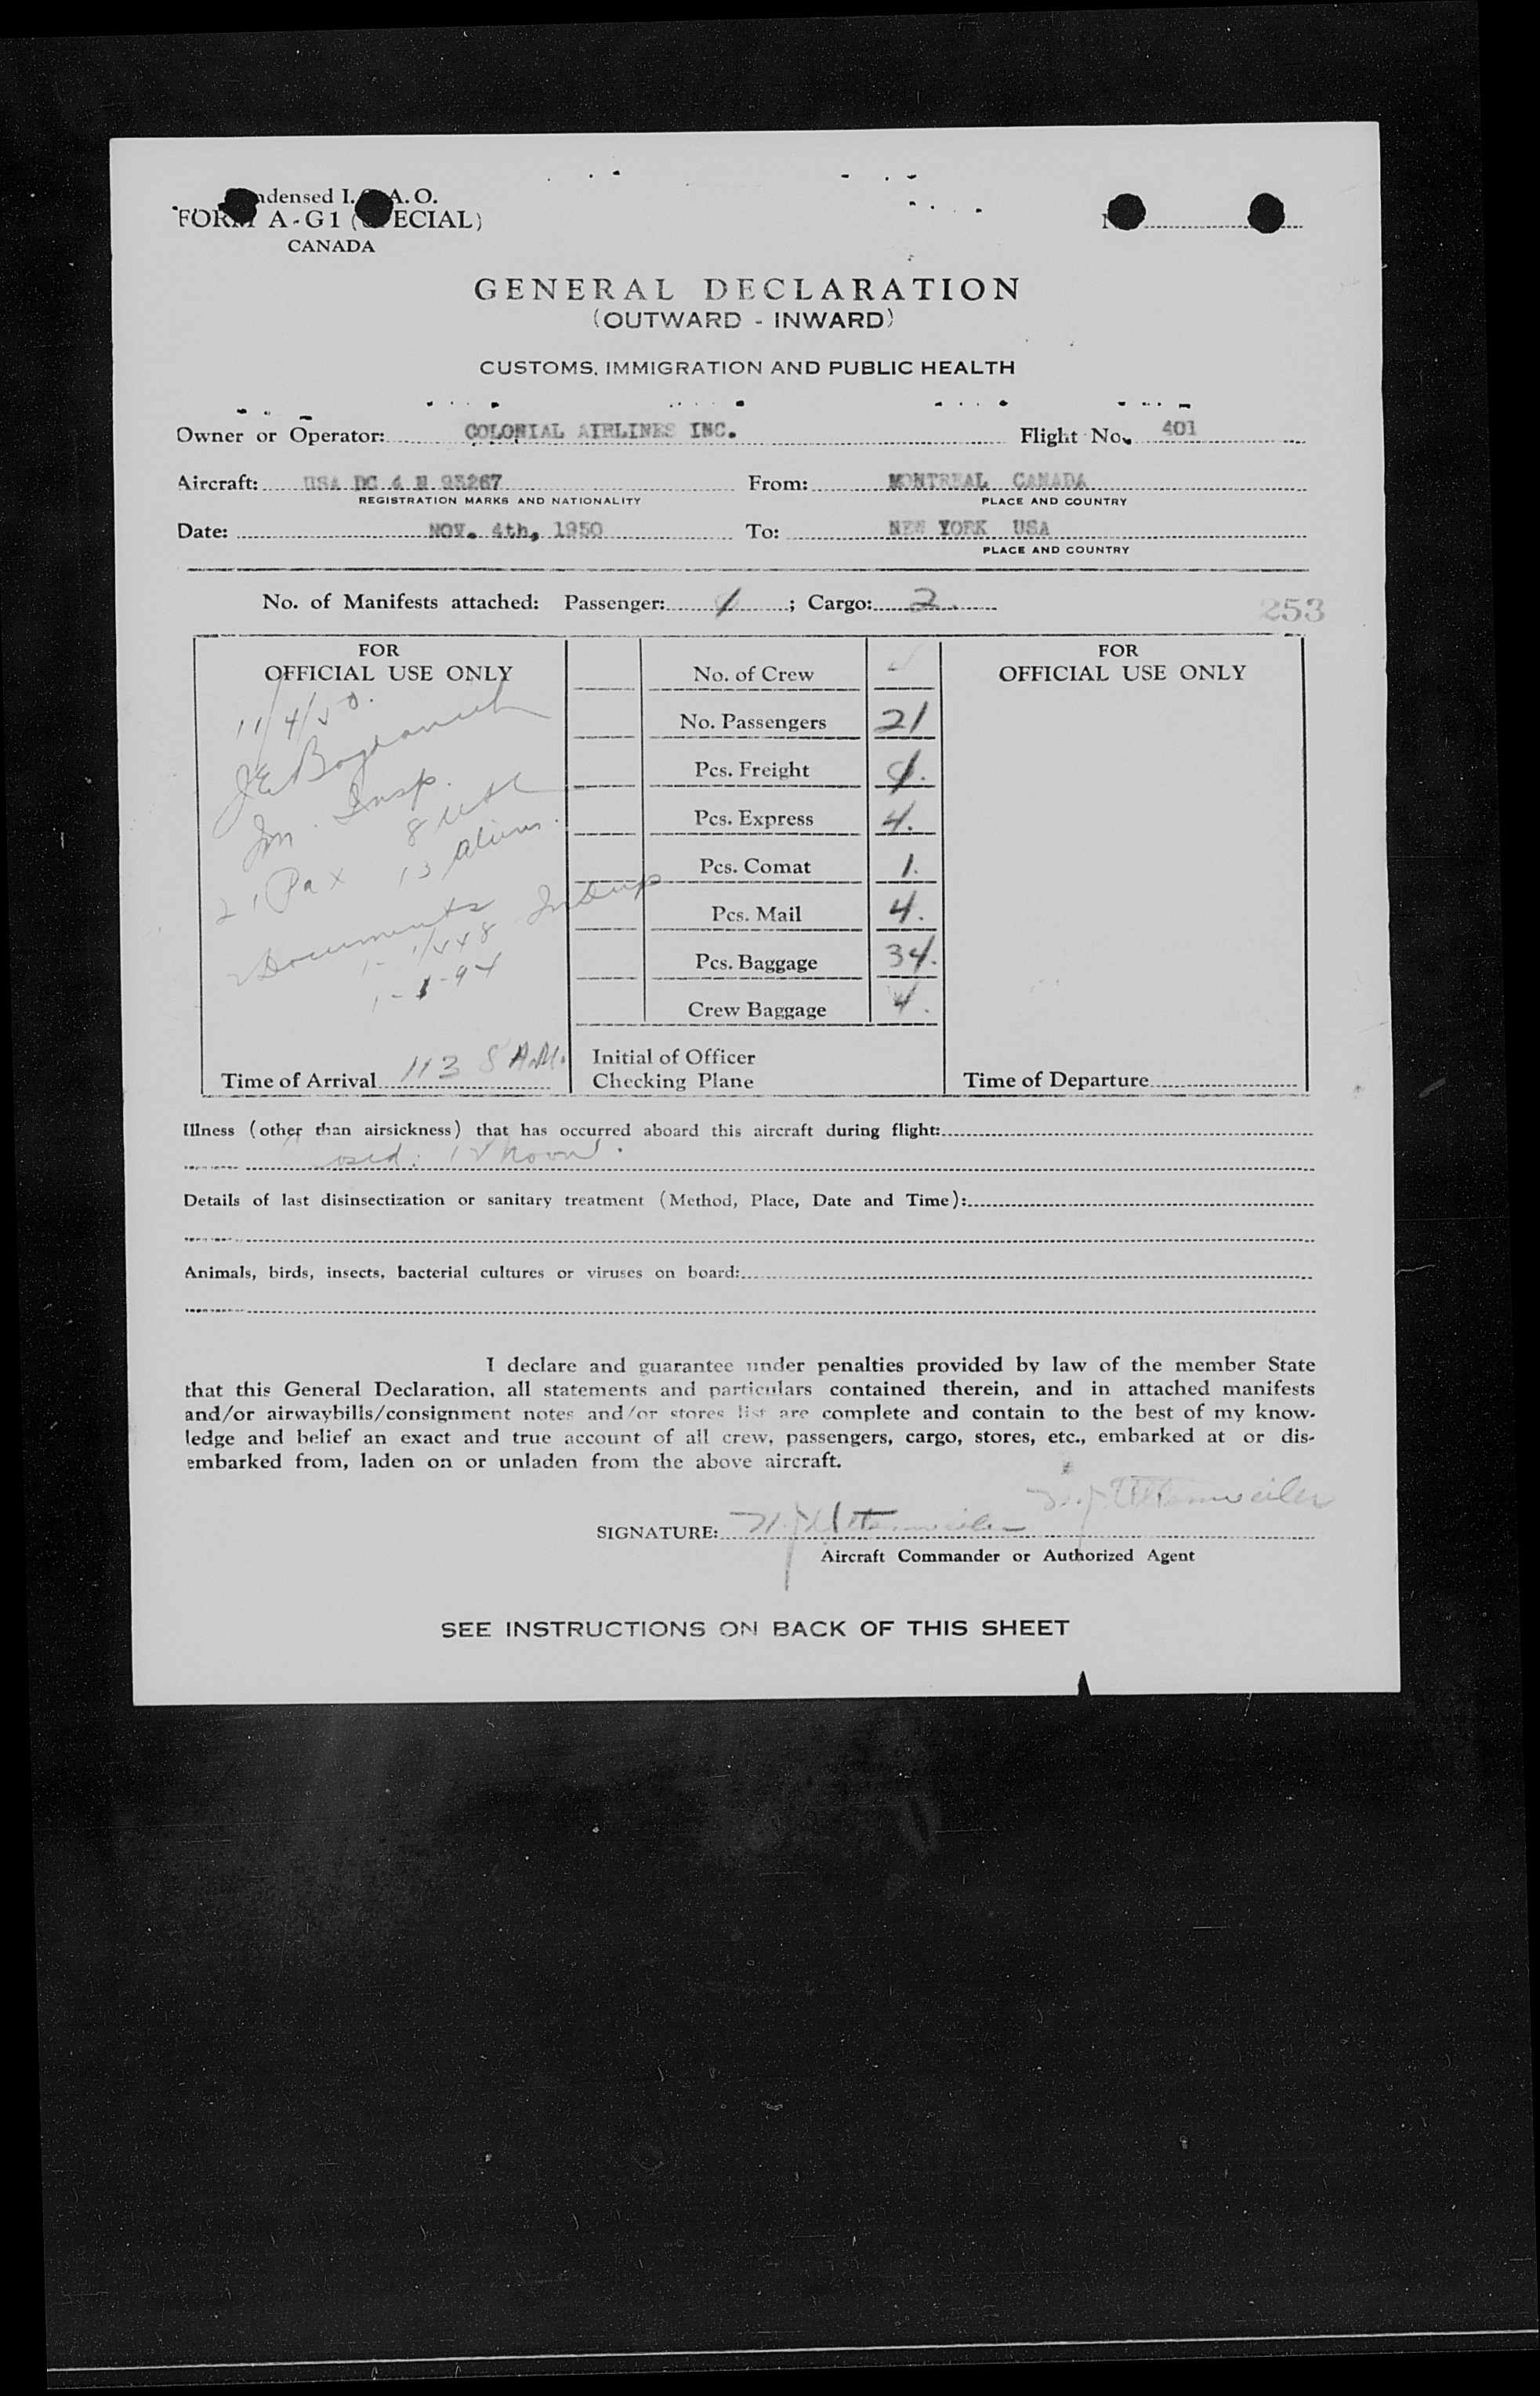 Condensed I.C.A.O.
FORM A-G1 (SPECIAL)
CANADA
GENERAL DECLARATION
(OUTWARD - INWARD)
CUSTOMS, IMMIGRATION AND PUBLIC HEALTH
Owner or Operator: COLONIAL AIRLINES INC. Flight No. 401
Aircraft: USA DC 4 N 93267 From: MONTREAL CANADA
REGISTRATION MARKS AND NATIONALITY PLACE AND COUNTRY
Date: NOV. 4th, 1950 To: NEW YORK USA
PLACE AND COUNTRY
No. of Manifests attached: Passenger: 1; Cargo: 2
253
FOR
OFFICIAL USE ONLY
11/4/50.
J E Bogdanich
Im. Insp.
21 Pax 8 USC
13 aliens.
Documents In Dup
Time of Arrival 113 5 A.M.
No. of Crew
No. Passengers 21
Pcs. Freight
Pcs. Express 4.
Pcs. Comat 1.
Pcs. Mail 4.
Pcs. Baggage 34.
Crew Baggage 4.
Initial of Officer
Checking Plane
FOR
OFFICIAL USE ONLY
Time of Departure
Illness (other than airsickness) that has occurred aboard this aircraft during flight:
noon
Details of last disinsectization or sanitary treatment (Method, Place, Date and Time):
Animals, birds, insects, bacterial cultures or viruses on board:
I declare and guarantee under penalties provided by law of the member State
that this General Declaration, all statements and particulars contained therein, and in attached manifests
and/or airwaybills/consignment notes and/or stores list are complete and contain to the best of my know-
ledge and belief an exact and true account of all crew, passengers, cargo, stores, etc., embarked at or dis-
embarked from, laden on or unladen from the above aircraft.
SIGNATURE:
Aircraft Commander or Authorized Agent
SEE INSTRUCTIONS ON BACK OF THIS SHEET